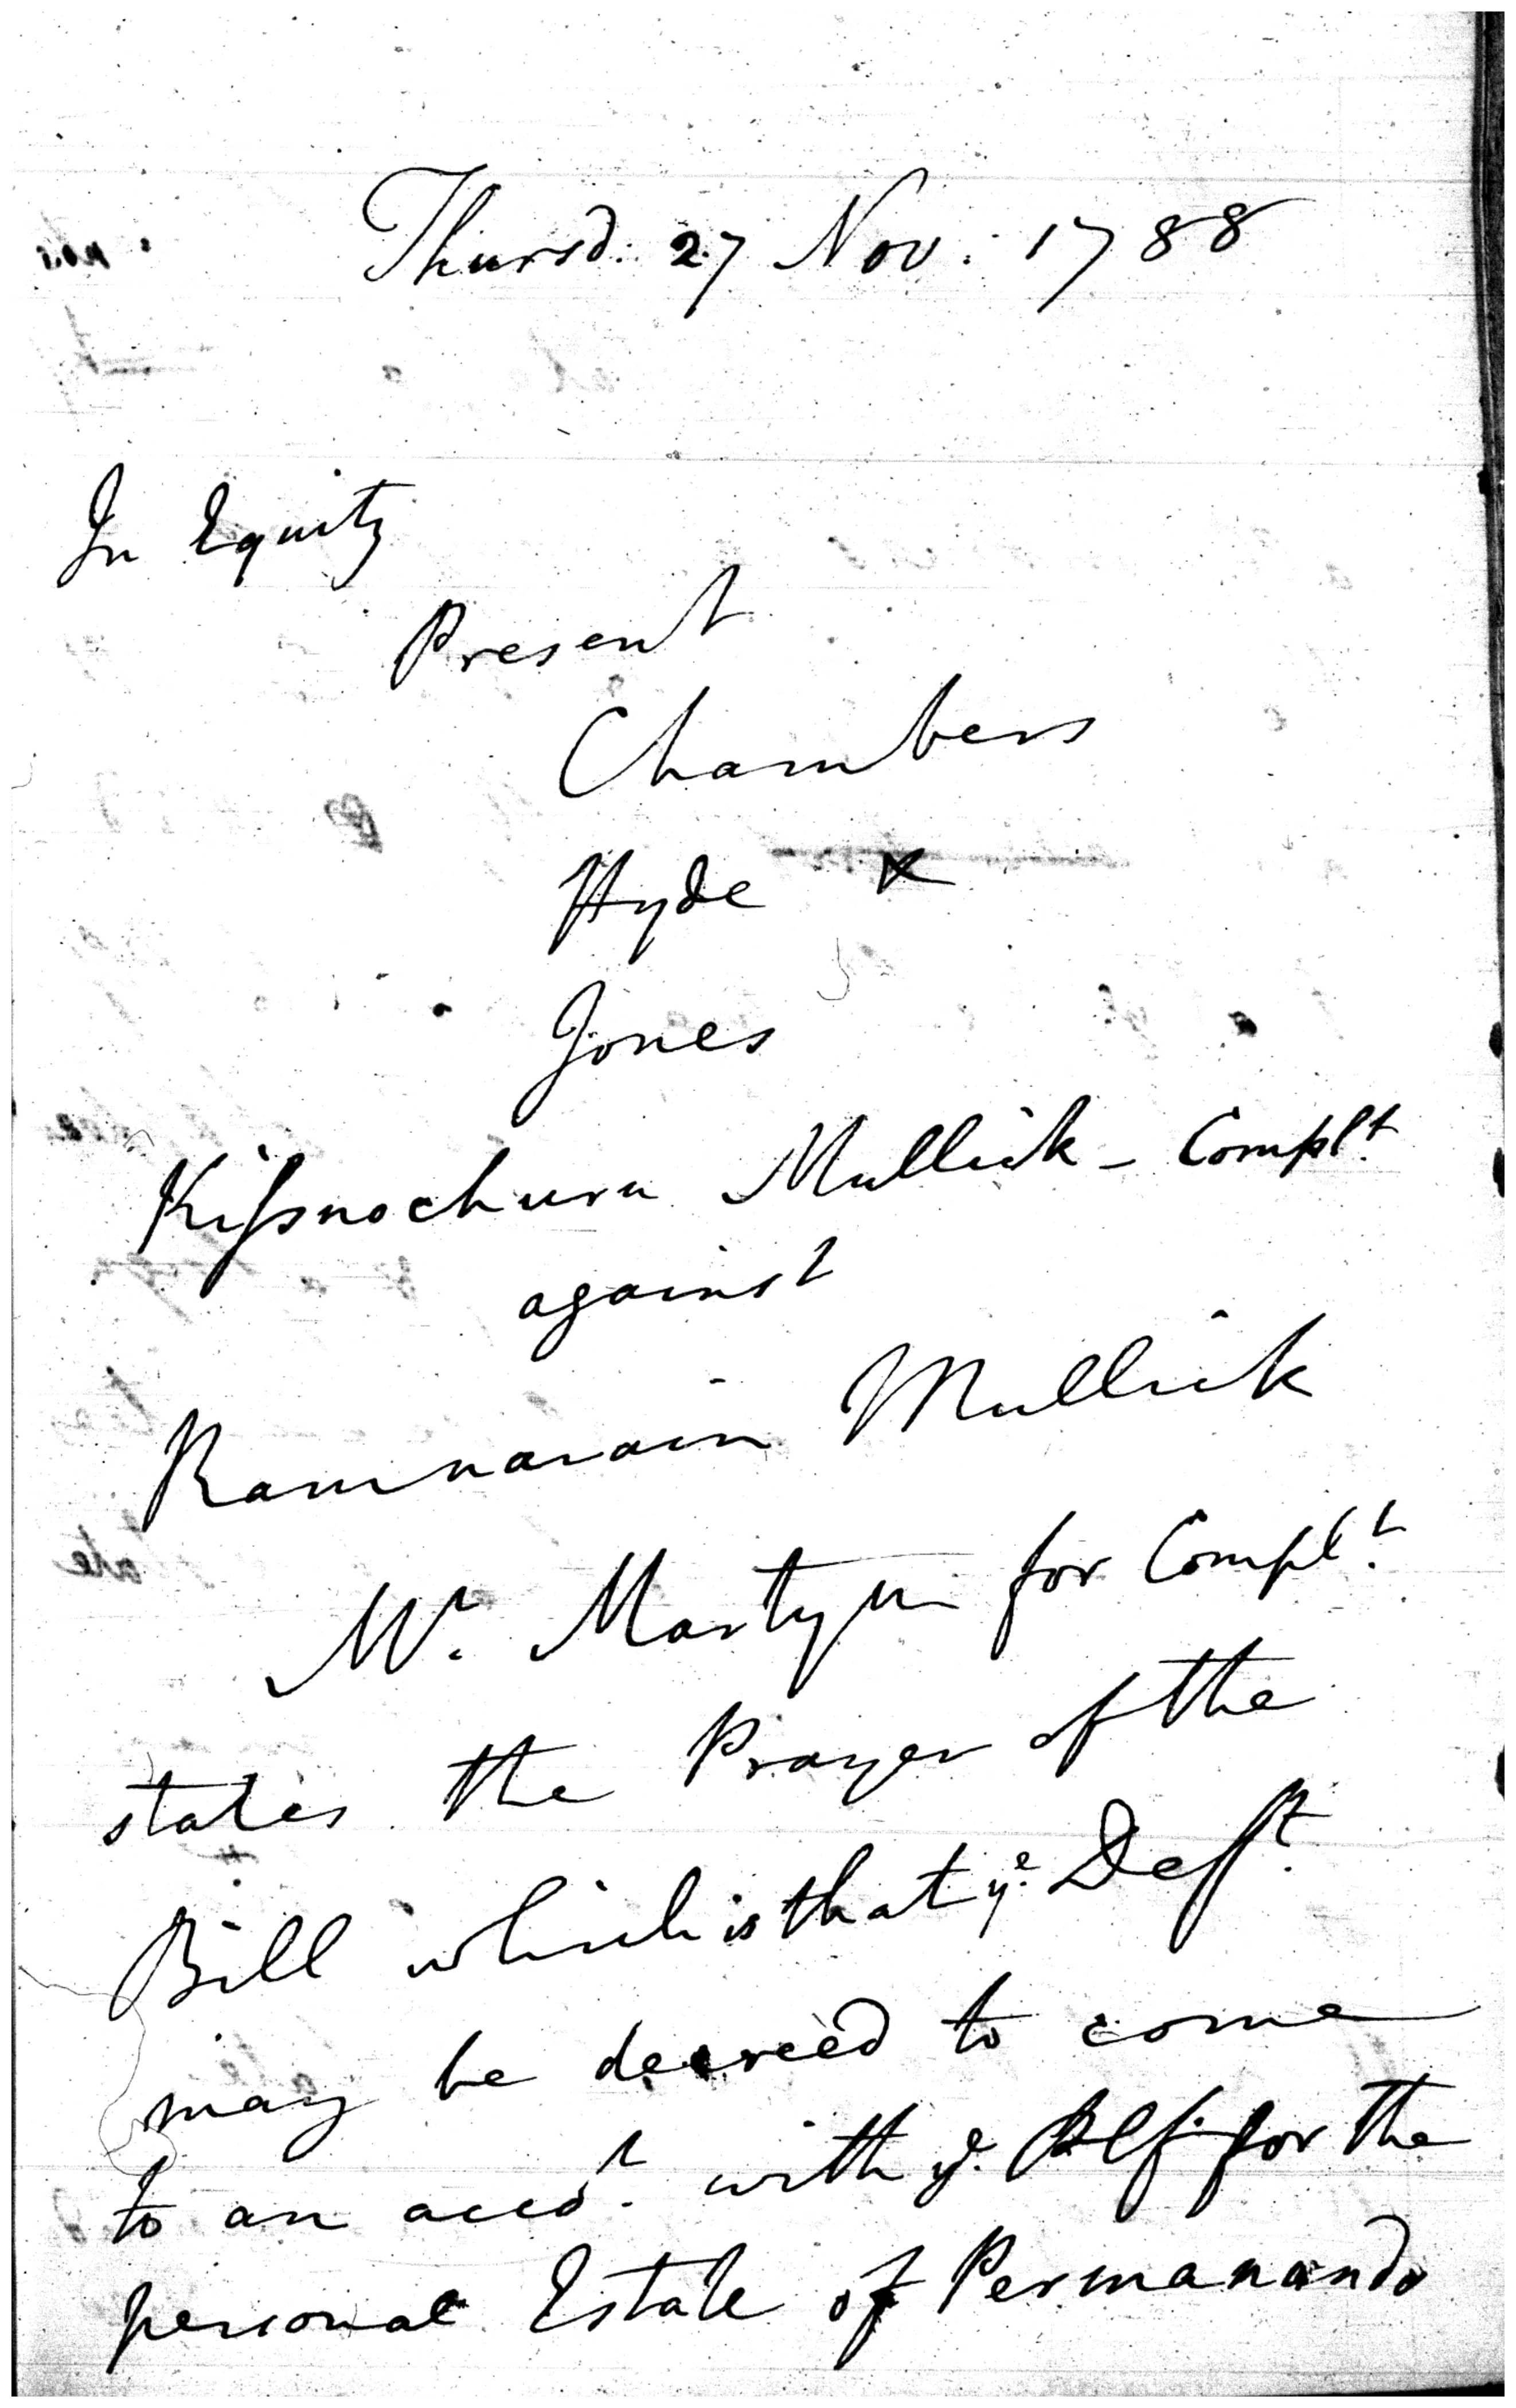 Thursd: 27 Nov: 1788
In Equity
Present
Chambers
Hyde x
Jones
Kiſsnochurn Mullick - Complt.
against
Ramnarain Mullick
Mr. Martyn for Complt.
states the Prayer of the
Bill which is that ye. Deft.
may be decreed to come
to an accot. with ye. Plf. for the
personal Estate of Permanando